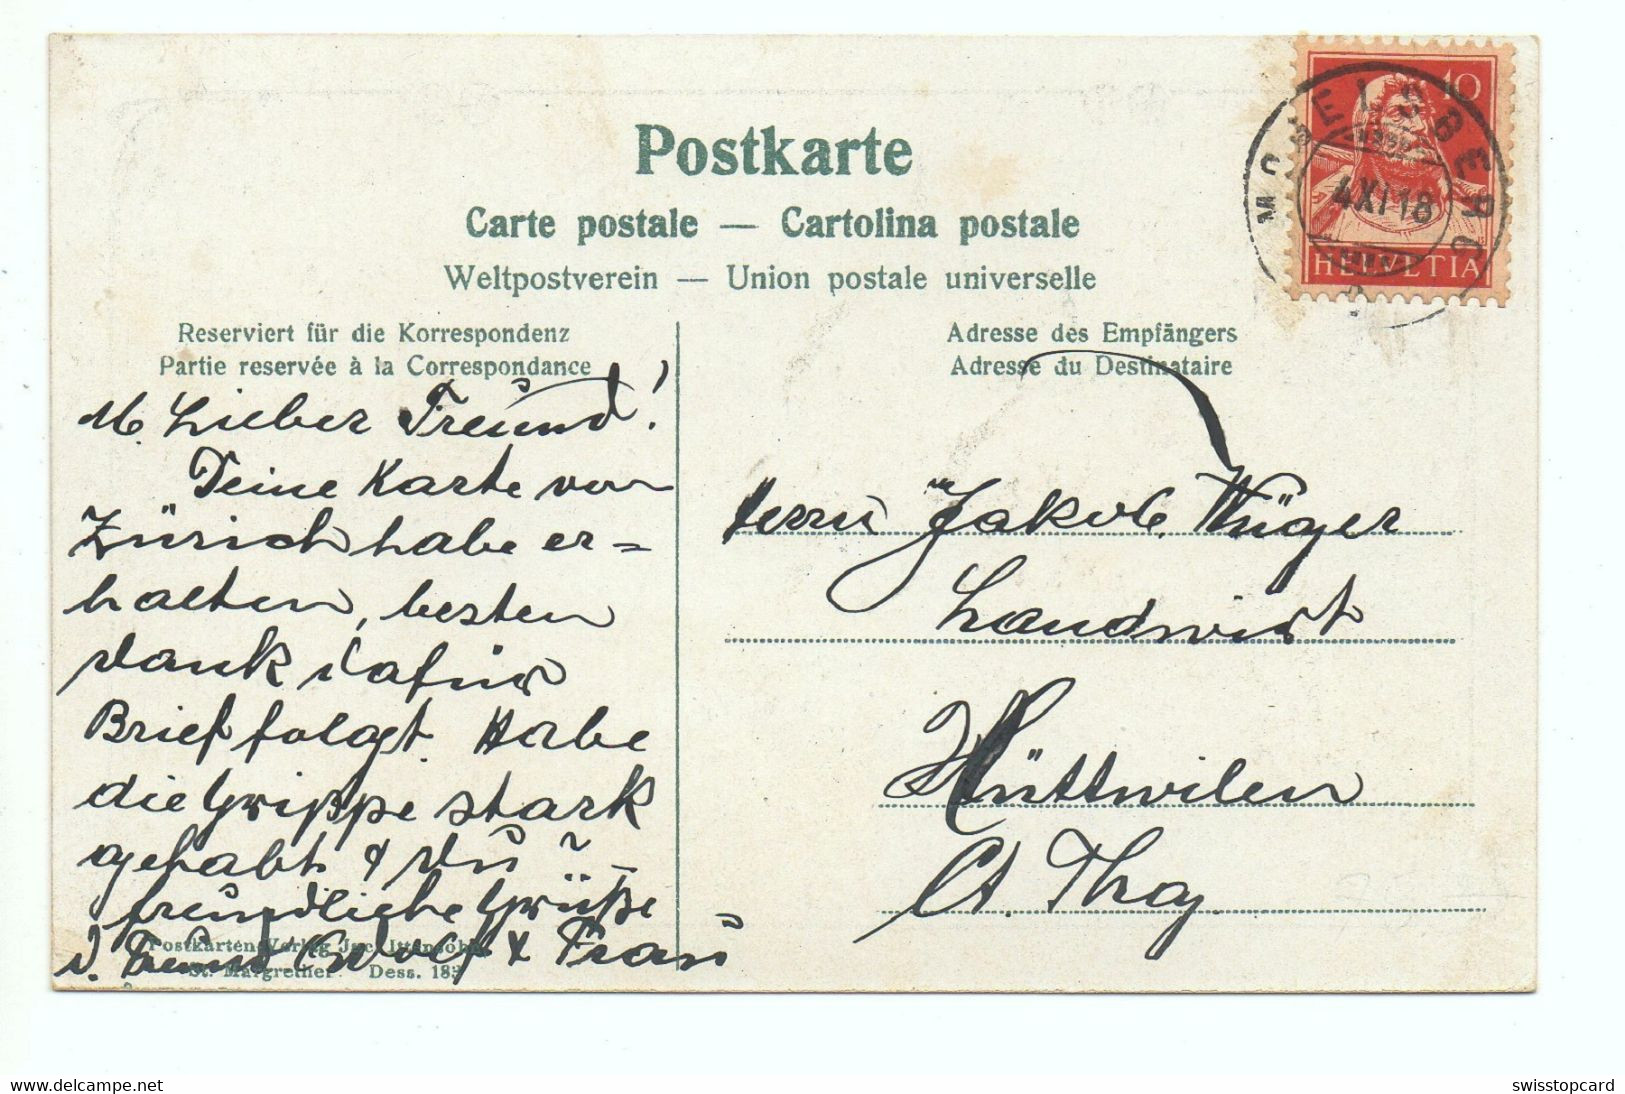 Postkarte
Carte postale — Cartolina postale
Weltpostverein — Union postale universelle
Reserviert für die Korrespondenz
Partie reservée à la Correspondance
Adresse des Empfängers
Adresse du Destinataire
10
HELVETIA
MOSNELSBERG
4 XI 18
M. Lieber Freund!
Deine Karte von
Zürich habe er=
halten, besten
Dank dafür
Brief folgt. Habe
die Grippe stark
gehabt & Du? –
freundliche Grüße
d. Freund Wolf & Frau
Postkarten-Verlag Jac. Ittensohn
St. Margrethen Dess. 183
Herrn Jakob Wüger
Landwirt
Hüttwilen
Ct. Thg.
Met en vente sur Delcampe.net
swisstopcard